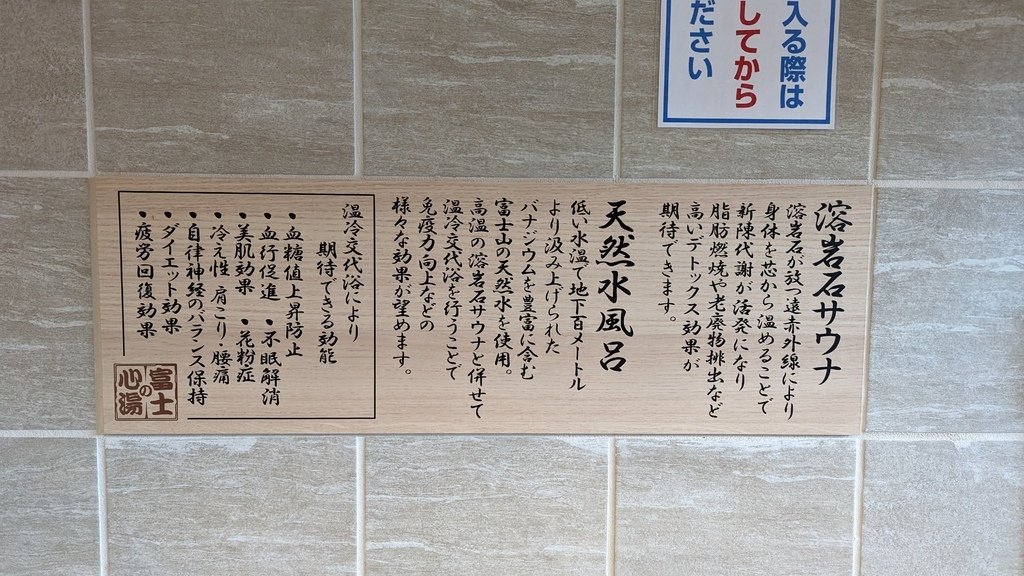 入る際は
してから
ださい
溶岩石サウナ
溶岩石が放つ遠赤外線により
身体を芯から温めることで
新陳代謝が活発になり
脂肪燃焼や老廃物排出など
高いデトックス効果が
期待できます。
天然水風呂
低い水温で地下百メートル
より汲み上げられた
バナジウムを豊富に含む
富士山の天然水を使用。
高温の溶岩石サウナと併せて
温冷交代浴を行うことで
免疫力向上などの
様々な効果が望めます。
温冷交代浴により
期待できる効能
・血糖値上昇防止
・血行促進 ・不眠解消
・美肌効果 ・花粉症
・冷え性 肩こり・腰痛
・自律神経のバランス保持
・ダイエット効果
・疲労回復効果
富士
の
心湯